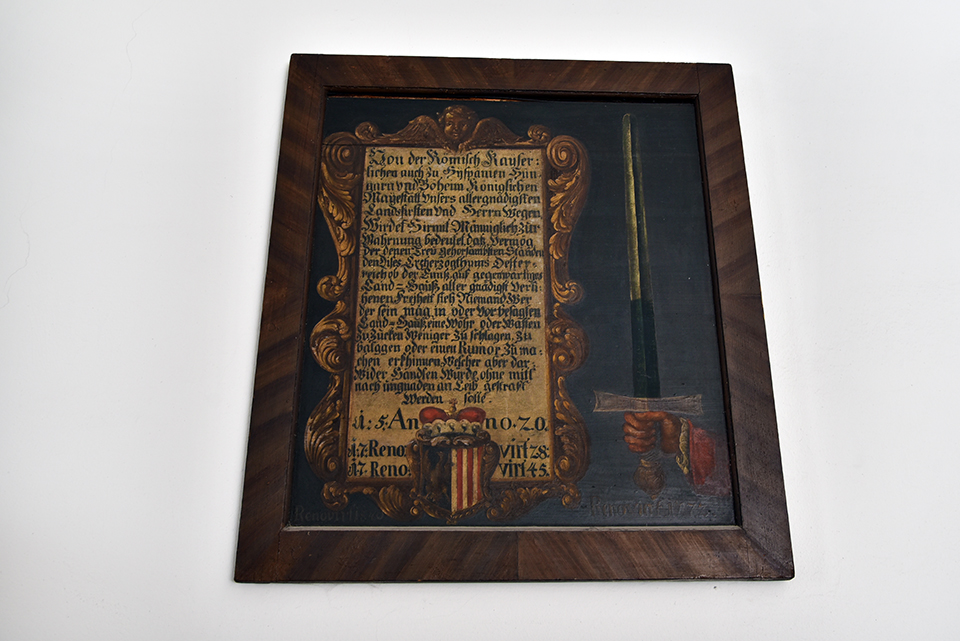 Von der Römisch Kayser:
lichen auch Zu Hyspanien Hün
gara vnd Boheim Königlichen
Mayestätt Vnsers allergnädigsten
Landsfürsten Vnd Herrn Wegen
Wirdet Hirmit Männiglich Zür
Wahrnung bedeutet, daß Vermög
der denen Treü gehorsambsten Ständen
den Dises Ertzherzogthums Oester=
reich ob der Ennß, auf gegenwärtiges
Land=Hauß aller gnädigst Verli
henen Freiheit sich Niemand Wer
der sein mag, in oder Vor besagten
Land=Hauß eine Wöhr oder Waffen
Zu Zucken Weniger Zu schlagen, Zu
balggen oder einen Rumor Zu ma=
chen erkhinnen, Welcher aber dar
Wider Handlen Wurde, ohne mitl
nach ungnaden an Leib gestrafft
Werden solle.
A: 5. An no. 20.
A: 7. Reno: virt 28:
A: 7. Reno: virt 45.
Renovirt